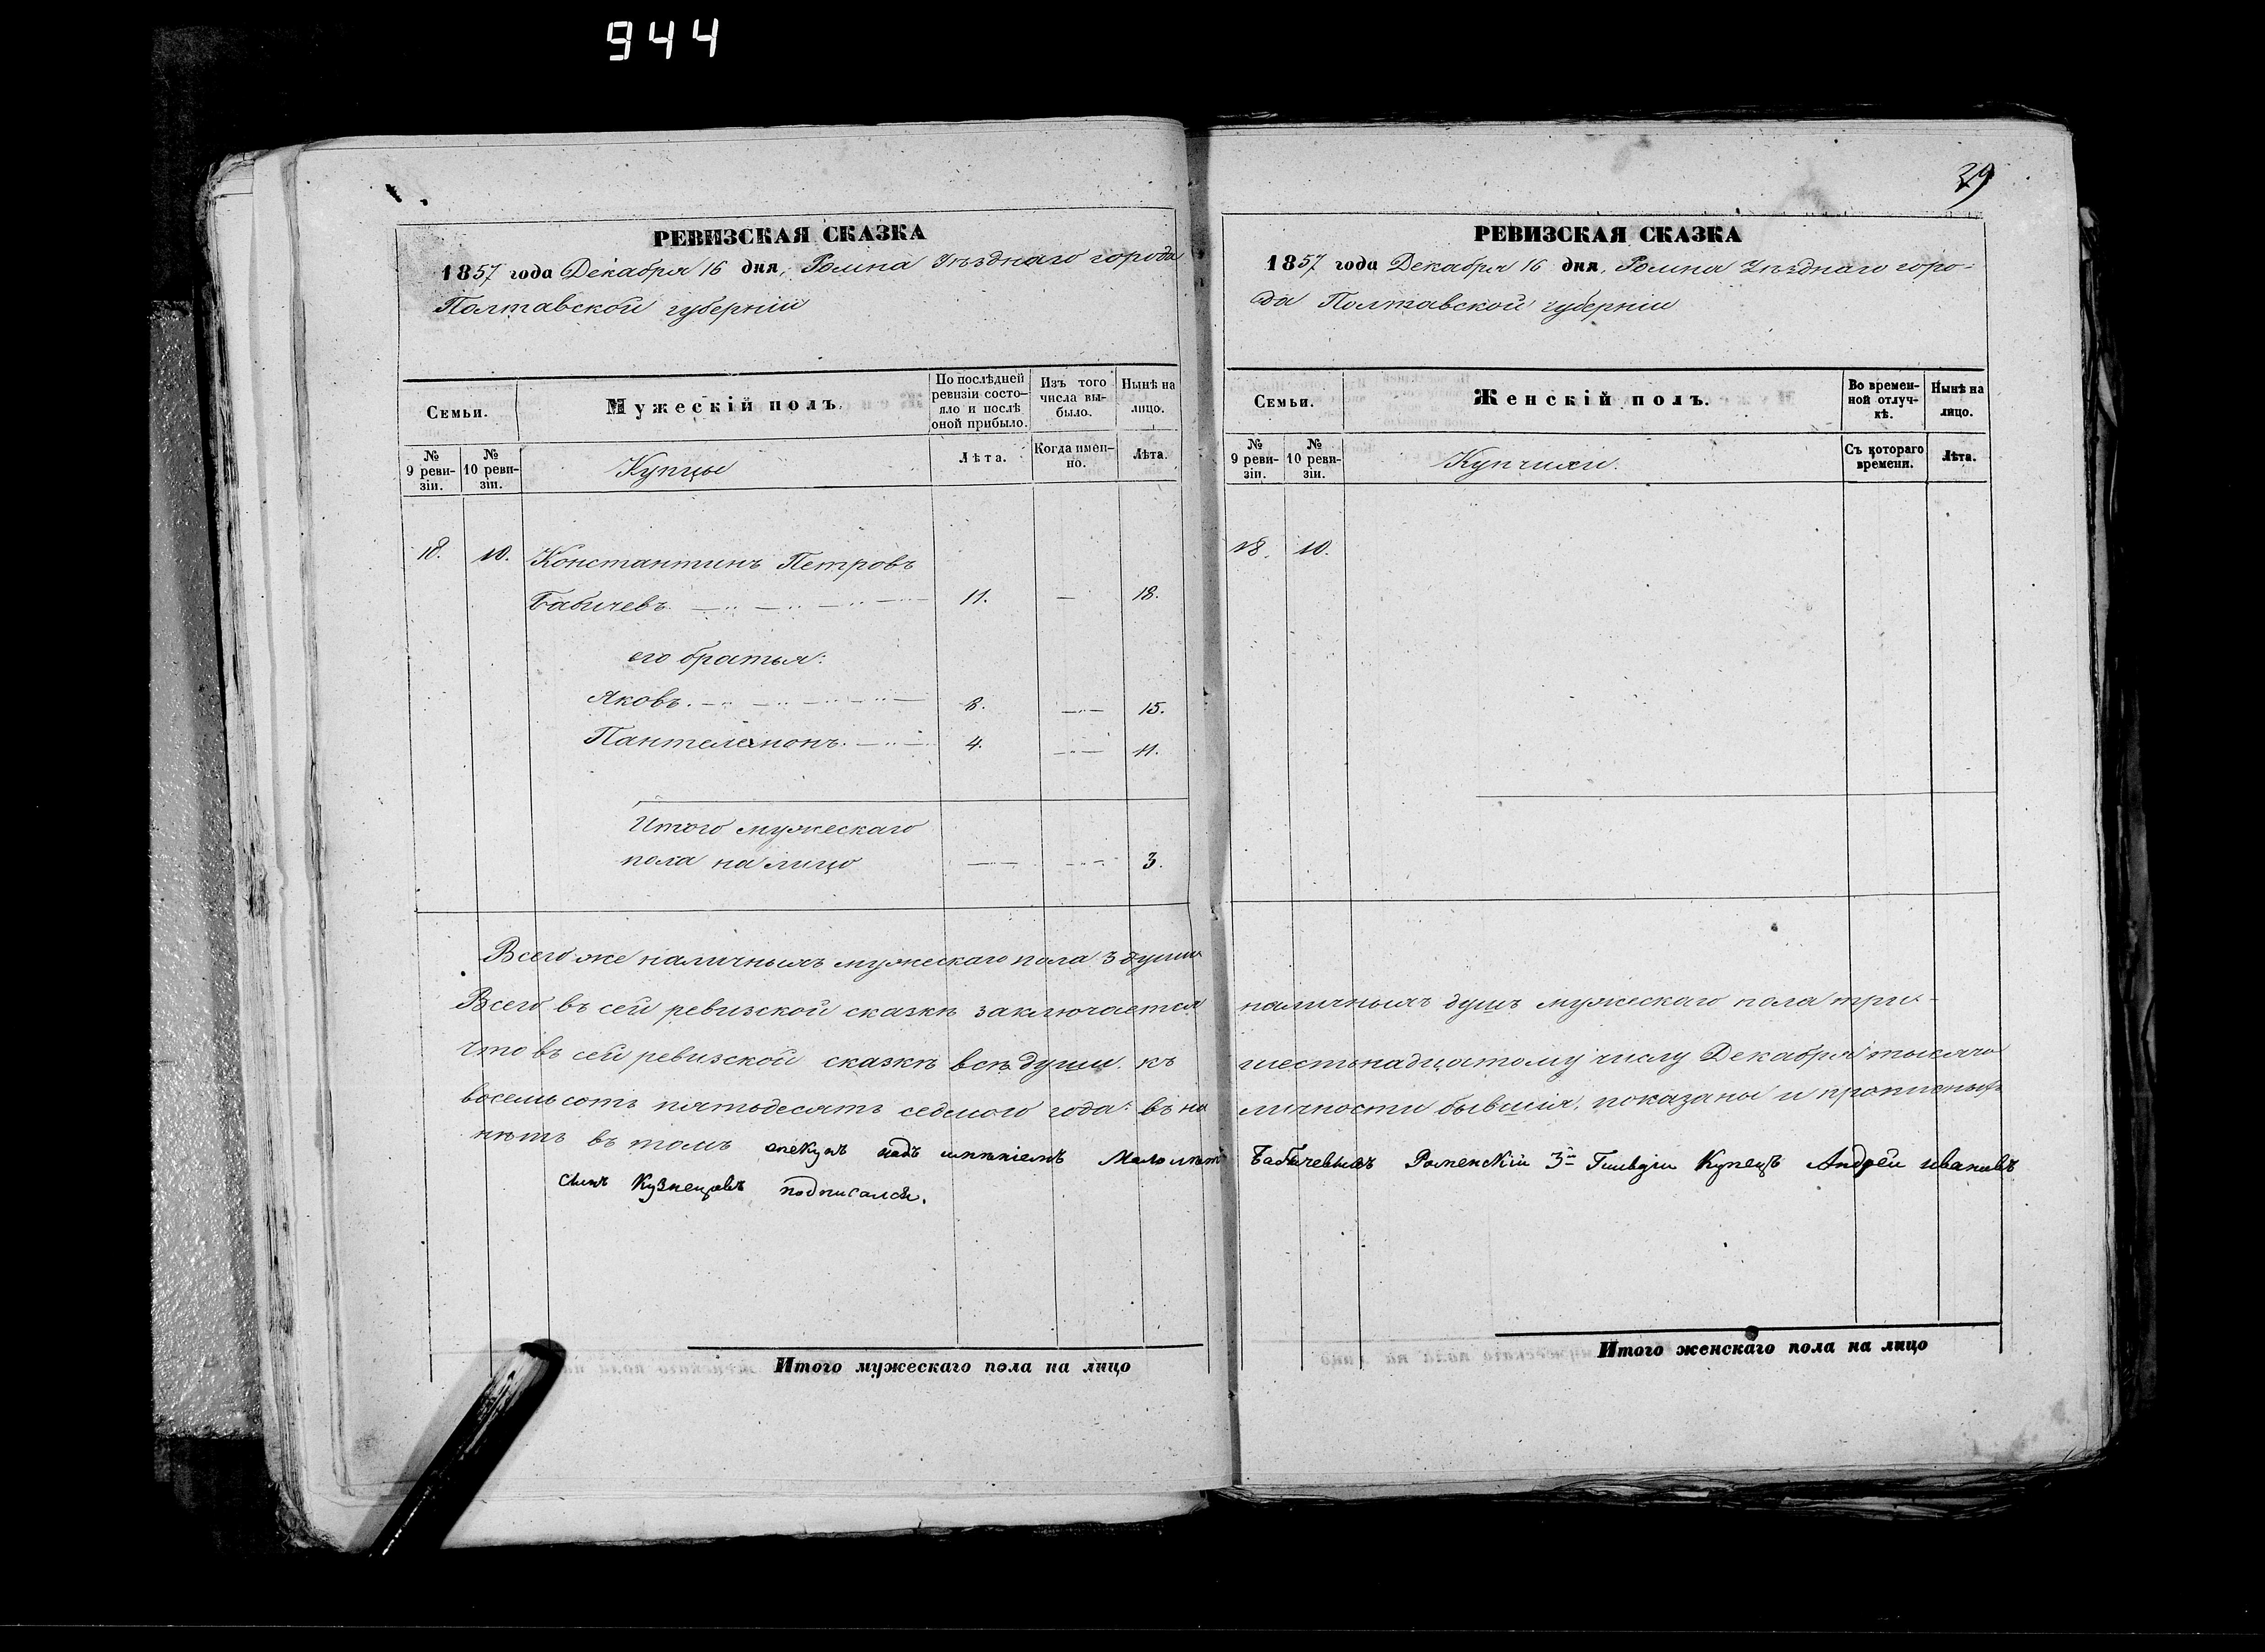 944
РЕВИЗСКАЯ СКАЗКА
1857 года Декабря 16 дня, Ромна Уѣзднаго города
Полтавской губерніи
Семьи.
Мужескій полъ.
По послѣдней ревизіи состо-
яло и послѣ
оной прибыло.
Изъ того
числа вы-
было.
Нынѣ на
лицо.
№
9 реви-
зіи.
№
10 реви-
зіи.
Купцы
Лѣта.
Когда имен-
но.
Лѣта.
18. 10. Константинъ Петровъ
Бабичевъ 11. — 18.
его братья:
Яковъ. 8. — 15.
Пантелемонъ. 4. — 11.
Итого мужескаго
пола на лицо — — 3.
Всего же наличныхъ мужескаго пола 3 души
Всего въ сей ревизской сказкѣ заключается
Что въ сей ревизской сказкѣ всѣ души къ
восемьсотъ пятьдесятъ седмого года въ на
нѣтъ въ томъ опекунъ надъ имѣніемъ Малолѣт
сынъ Кузнецовъ подписался.
Итого мужескаго пола на лицо
39
РЕВИЗСКАЯ СКАЗКА
1857 года Декабря 16 дня, Ромна Уѣзднаго горо-
да Полтавской губерніи
Семьи.
Женскій полъ.
Во времен-
ной отлуч-
кѣ.
Нынѣ на
лицо.
№
9 реви-
зіи.
№
10 реви-
зіи.
Купчихи.
Съ котораго
времени.
Лѣта.
18. 10.
наличныхъ душъ мужескаго пола три.-
шестьнадцатому числу Декабря тысяча
личности бывшія, показаны и прописныхъ
Бабичевыхъ Роменскій 3й Гильдіи Купецъ Андрей ивановъ
Итого женскаго пола на лицо